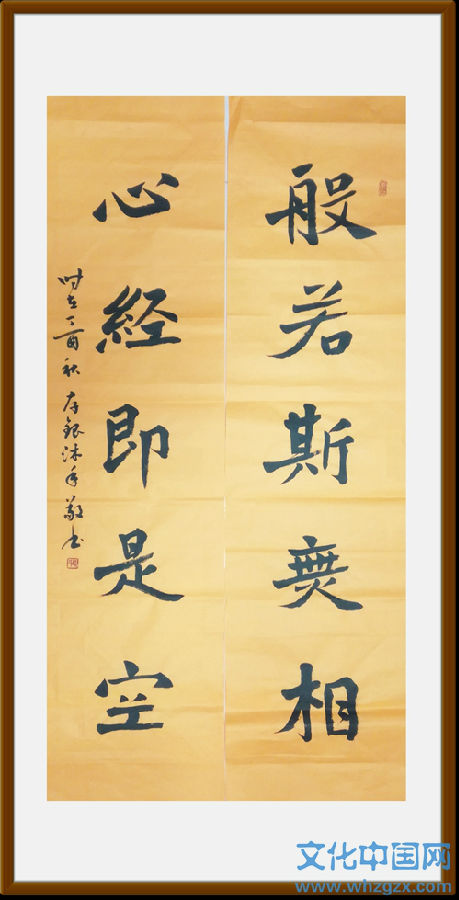 般若斯無相
心经即是空
时在丁酉秋 存銀沐手敬书
文化中国网
www.whzgzx.com